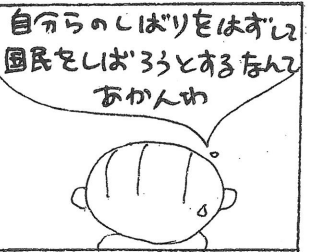 自分らのしばりをはずして
国民をしばろうとするなんて
あかんわ